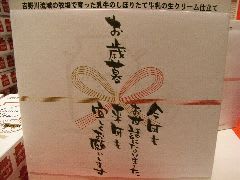 吉野川流域の牧場で育った乳牛のしぼりたて牛乳の生クリーム仕立て
お歳暮
今年も
お世話になりました
来年も
宜しくお願いします